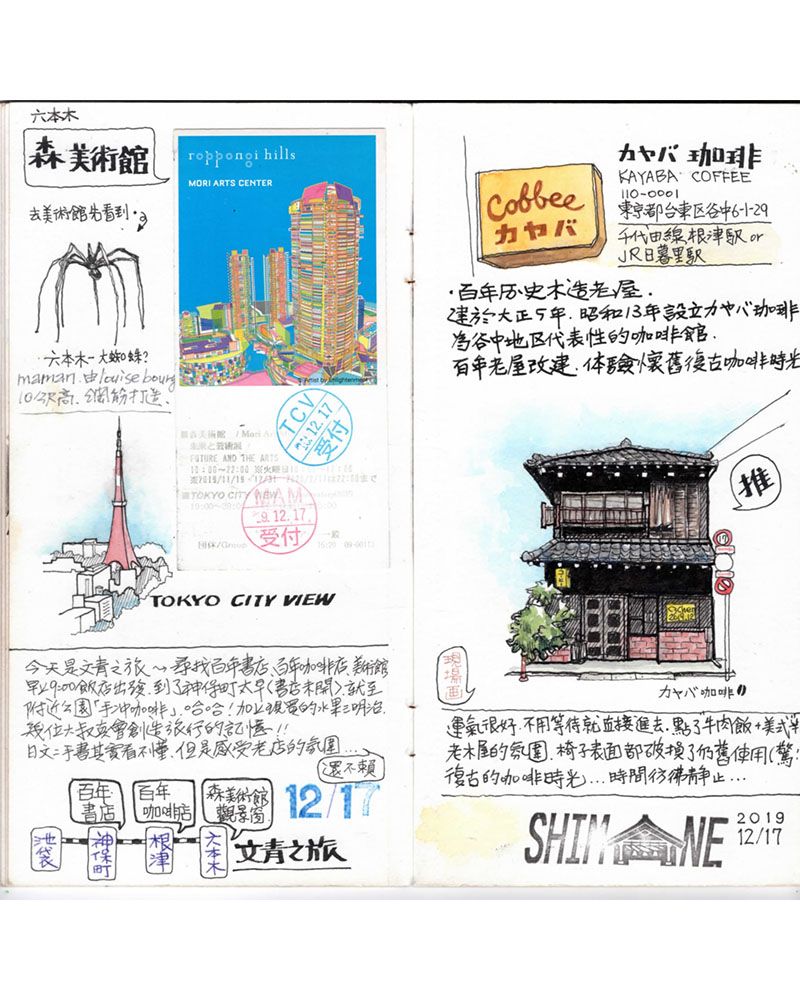 六本木
森美術館
去美術館先看到
六本木-大蜘蛛?
maman. 由louise bourg
10公尺高. 鋼筋打造.
roppongi hills
MORI ARTS CENTER
© Artist by Enlightenment
TCV
12.12.17
受付
■森美術館 / Mori Ar
未来と芸術展
FUTURE AND THE ARTS
10:00～22:00 ※火曜日10:00～17:00
■TOKYO CITY VIEW
10:00～
MAM
9.12.17
受付
一般
団体/Group
TOKYO CITY VIEW
今天是文青之旅～尋找百年書店、百年咖啡店、美術館
早上9:00飯店出發. 到了神保町太早(書店未開). 就至
附近公園「手沖咖啡」. 哈哈! 加上現買的水果三明治.
幾位大叔真會創造旅行的記憶~!!
日文二手書其實看不懂. 但是感受老店的氛圍...
還不賴
12/17
百年書店
百年咖啡店
森美術館觀景窗
池袋
神保町
根津
六本木
文青之旅
Cobbee
カヤバ
カヤバ 珈琲
KAYABA COFFEE
110-0001
東京都台東区谷中6-1-29
千代田線根津駅 or
JR日暮里駅
·百年历史木造老屋.
建於大正5年. 昭和13年設立カヤバ珈琲
為谷中地区代表性的咖啡館.
百年老屋改建. 体驗懷舊復古咖啡時光
推
現場画
カヤバ咖啡
運氣很好. 不用等待就直接進去. 點了牛肉飯+美式
老木屋的氛圍. 椅子表面都破損了仍舊使用(驚
復古的咖啡時光...時間彷彿靜止...
SHIMANE
2019
12/17